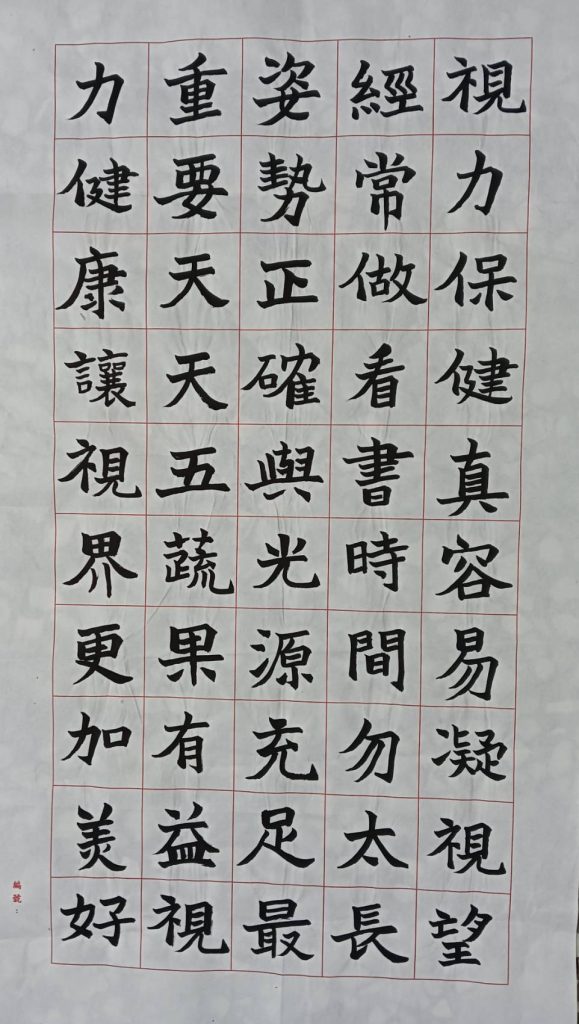 視力保健真容易凝視望
經常做看書時間勿太長
姿勢正確與光源充足最
重要天天五蔬果有益視
力健康讓視界更加美好
編號：